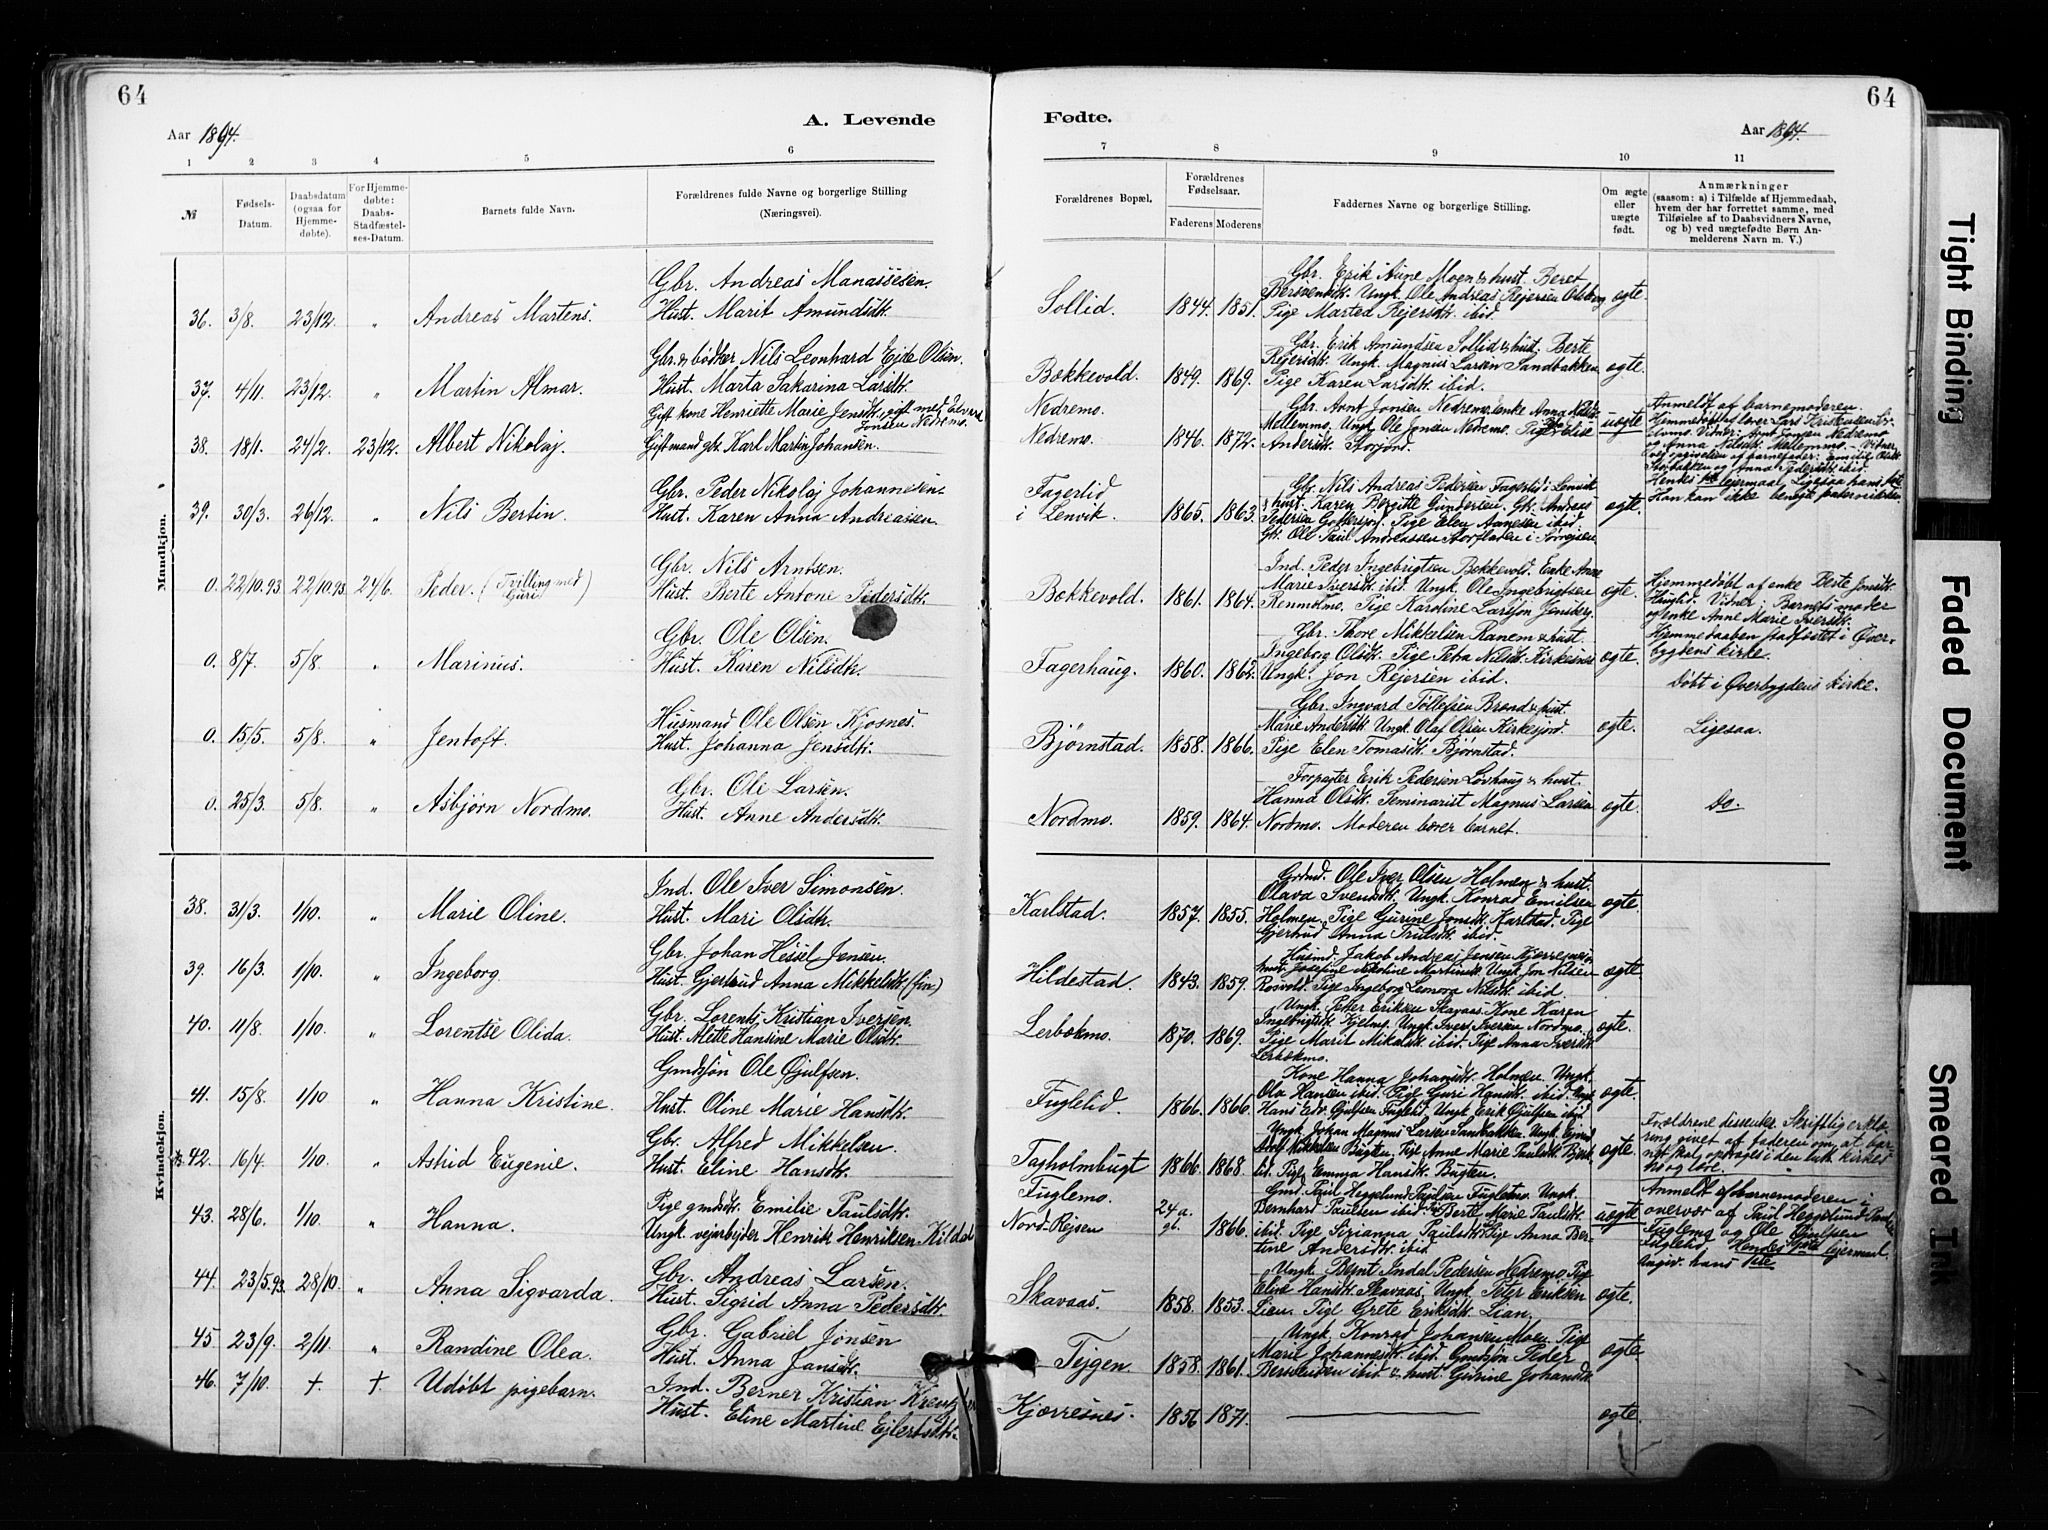 64
64
Aar 1894.
A. Levende
Fødte.
Aar 1894.
1 2 3 4 5 6 7 8 9 10 11
№
Fødsels-
Datum.
Daabsdatum
(ogsaa for
Hjemme-
døbte).
For Hjemme-
døbte:
Daabs-
Stadfæstel-
ses-Datum.
Barnets fulde Navn.
Forældrenes fulde Navne og borgerlige Stilling
(Næringsvei).
Forældrenes Bopæl.
Forældrenes
Fødselsaar.
Faderens Moderens
Faddernes Navne og borgerlige Stilling.
Om ægte
eller
uægte
født.
Anmærkninger
(saasom: a) i Tilfælde af Hjemmedaab,
hvem der har forrettet samme, med
Tilføielse af to Daabsvidners Navne,
og b) ved uægtefødte Børn An-
melderens Navn m. V.)
Mandkjøn.
Gbr. Andreas Manassesen.
36. 3/8. 23/12. " Andreas Martens. Hust. Marit Amundsdtr.
Sollid. 1844. 1851.
Gbr. Erik Aune Moen & hust. Beret
Ungk. Ole Andreas Rejersen Olsborg
Pige Marted Rejersdtr. ibid.
ægte.
Gbr. & bødker Nils Leonhard Ejde Olsen.
37. 4/11. 23/12. " Martin Almar. Hust. Marta Sakarina Larsdtr.
Bækkevold. 1849. 1869.
Gbr. Erik Amundsen Sollid & hust. Berte
Rejersdtr. Ungk. Magnus Larsen Sandbakken
Pige Karen Larsdtr. ibid.
ægte.
Gift kone Henriette Marie Jensdtr. gift med Edvard
Jonsen Nedremo.
38. 18/1. 24/2. 23/12. Albert Nikolaj. Gift mand gbr. Karl Martin Johansen.
Nedremo.
Nedremo. 1846. 1872.
Gbr. Arnt Jonsen Nedremo. Enke Anna Nilsdtr.
Mellemmo. Ungk. Ole Jonsen Nedremo. Pige Elise
Andersdtr. Storjord.
uægte
Anmeldt af barnemoderen.
Hjemmedøbt af lærer Lars Kristensen
Vidner: Arnt Jonsen Nedremo
og Anna Nilsdtr. Mellemmo. Vidner
ved opgivelsen af barnefader:
Storbakken og Anna Pedersdtr. ibid.
Hendes 1ste lejermaal, Ligesaa hans 1ste
Han kan ikke
Gbr. Peder Nikolaj Johannesen.
39. 30/3. 26/12. " Nils Bertin. Hust. Karen Anna Andreassen.
Fagerlid
i Lenvik. 1865. 1863.
Gbr. Nils Andreas Pedersen Fagerlid i Lenvik
& hust. Karen Bergitte Gundersen. Gbr. Andreas
Pedersen Pige Elen Aanesen ibid.
Gbr. Ole Paul Andreassen Storfladen i Sørrejsen
ægte.
Gbr. Nils Arntsen.
0. 22/10.93. 22/10.93. 24/6. Peder. (Tvilling med
Guri) Hust. Berte Antone Pedersdtr.
Bækkevold. 1861. 1864.
Ind. Peder Ingebrigtsen Bækkevold. Enke Anne
Marie Iversdtr. ibid. Ungk. Ole Ingebrigtsen
Renmolmo. Pige Karoline Larssøn Jensberg.
ægte.
Hjemmedøbt af enke Berte Jonsdtr.
Hauglid. Vidner: Barnets moder
og enke Anne Marie Iversdtr.
Hjemmedaaben stadfæstet i Øver-
bygdens kirke.
Gbr. Ole Olsen.
0. 8/7. 5/8. " Marinus. Hust. Karen Nilsdtr.
Fagerhaug. 1860. 1862.
Gbr. Thore Mikkelsen Ranem & hust.
Ingeborg Olsdtr. Pige Petra Nilsdtr. Kirkesnes
Ungk. Jon Rejersen ibid.
ægte.
Døbt i Øverbygdens kirke.
Husmand Ole Olsen Kjosnes.
0. 15/5. 5/8. " Jentoft. Hust. Johanna Jensdtr.
Bjørnstad. 1858. 1866.
Gbr. Ingvard Tollefsen Brand & hust.
Marie Andersdtr. Ungk. Olaf Olsen Kirkesjord.
Pige Elen Tomasdtr. Bjørnstad.
ægte.
Ligesaa.
Gbr. Ole Larsen.
0. 25/3. 5/8. " Asbjørn Nordmo. Hust. Anne Andersdtr.
Nordmo. 1859. 1864.
Forpagter Erik Pedersen Løvhaug & hust.
Hanna Olsdtr. Seminarist Magnus Larsen
Nordmo. Moderen bærer barnet.
ægte.
Do.
Kvindekjøn.
Ind. Ole Iver Simonsen.
38. 31/3. 1/10. " Marie Oline. Hust. Mari Olsdtr.
Karlstad. 1857. 1855.
Grbmd. Ole Iver Olsen Holmen & hust.
Olava Svendsdtr. Ungk. Konrad Emilsen
Holmen. Pige Gurine Jonsdtr. Karlstad. Pige
Gjertrud Anna Trulsdtr. ibid.
ægte.
Gbr. Johan Hessel Jensen.
39. 16/3. 1/10. " Ingeborg. Hust. Gjertrud Anna Mikkelsdtr. (fin)
Hildestad. 1843. 1859.
Husmd. Jakob Andreas Jensen Kjerresnes
hust. Josefine Nikoline Martinsdtr. Ungk. Jon Nilsen
Rosvold. Pige Ingeborg Leonora Nilsdtr. ibid.
ægte.
Gbr. Lorents Kristian Iversen.
40. 11/8. 1/10. " Lorentse Olida. Hust. Alette Hansine Marie Olsdtr.
Lerbækmo. 1870. 1869.
Ungk. Petter Eriksen Skavaas. Kone Karen
Ingebrigtsdtr. Kjelmo. Ungk. Sivert Iversen Nordmo.
Pige Marit Mikalsdtr. ibid. Pige Anna Iversdtr.
Lerbækmo.
ægte.
Gmdsjøn Ole Gjulfsen.
41. 15/8. 1/10 " Hanna Kristine. Hust. Oline Marie Hansdtr.
Fuglelid. 1866. 1866.
Kone Hanna Johansdtr. Holmen. Ungk.
Ola Hansen ibid. Pige Guri Hansdtr. ibid. Ungk.
Hans Edv. Gjulfsen Fuglelid, Ungk. Erik Gjulfsen ibid.
ægte.
Gbr. Alfred Mikkelsen
42. 16/4. 1/10. " Astrid Eugenie. Hust. Eline Hansdtr.
Tagholmbugt 1866. 1868.
Ungk. Johan Magnus Larsen Sandbakken. Ungk. Ejnar
Adolf Nikolaisen Bugten. Pige Anne Marie Paulsdtr. Bjerk-
lid. Pige Emma Hansdtr. Bugten.
ægte.
Forældrene dissenter. Skriftlig erklæ-
ring givet af faderen om, at bar-
net skal opdrages i den luth. kirkes
tro og lære.
Pige gmdsdtr. Emilie Paulsdtr.
43. 28/6. 1/10. " Hanna. Ungk. vejarbejder Henrik Henriksen Kildal
Fuglemo.
Nord-Rejsen 24 a. gl. 1866.
Gmd. Paul Heggelund Paulsen Fuglemo. Ungk.
Bernhard Paulsen ibid. Pige Berte Marie Paulsdtr.
ibid. Pige Sirianna Paulsdtr. Pige Anna Ber-
tine Andersdtr. ibid.
uægte
Anmeldt af barnemoderen i
overvær af Paul Heggelund Paulsen
Fuglemo og Ole Gjulfsen
Fuglelid. Hendes 1ste lejermaal
Angiv. hans 1ste
Gbr. Andreas Larsen.
44. 23/5.93. 28/10. " Anna Sigvarda. Hust. Sigrid Anna Pedersdtr.
Skavaas. 1858. 1853.
Ungk. Bernt Indal Pedersen Nedremo. Pige
Eline Hansdtr. Skavaas. Ungk. Peter Eriksen
Lien. Pige Grete Eriksdtr. Lian.
ægte.
Gbr. Gabriel Jonsen
45. 23/9. 2/11. " Randine Olea. Hust. Anna Jansdtr.
Tejgen. 1858. 1861.
Ungk. Konrad Johansen Moen. Pige
Marie Johannesdtr. ibid. Gmdsjøn Peder
Berntsen ibid & hust. Gurine Johansdtr.
ægte
Ind. Berner Kristian Kreutz
46. 7/10. † † Udøbt pigebarn. Hust. Eline Martine Ejlertsdtr.
Kjerresnes. 1856 1871. ——— ægte.
Tight Binding
Faded Document
Smeared Ink